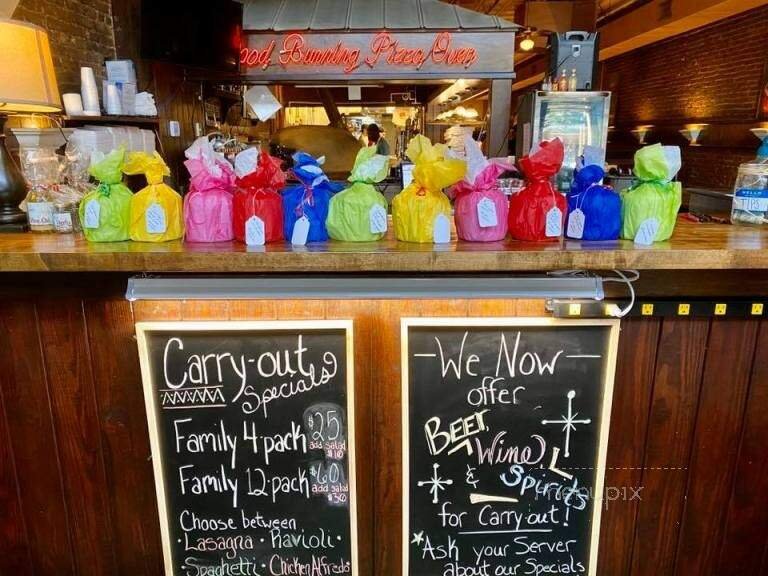 ood Burning Pizza Oven
TIPS
Carry-out
Specials
Family 4-pack $25
add salad
$10
Family 12-pack $60
add salad
$30
Choose between
• Lasagna • Ravioli •
• Spaghetti • Chicken Alfredo
- We Now -
offer
Beer,
Wine
& Spirits
for Carry-out!
*Ask your Server
about our Specials
menupix